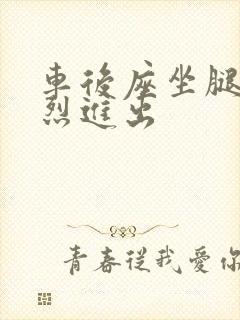 車後座坐腿
烈進出
青春從我愛你